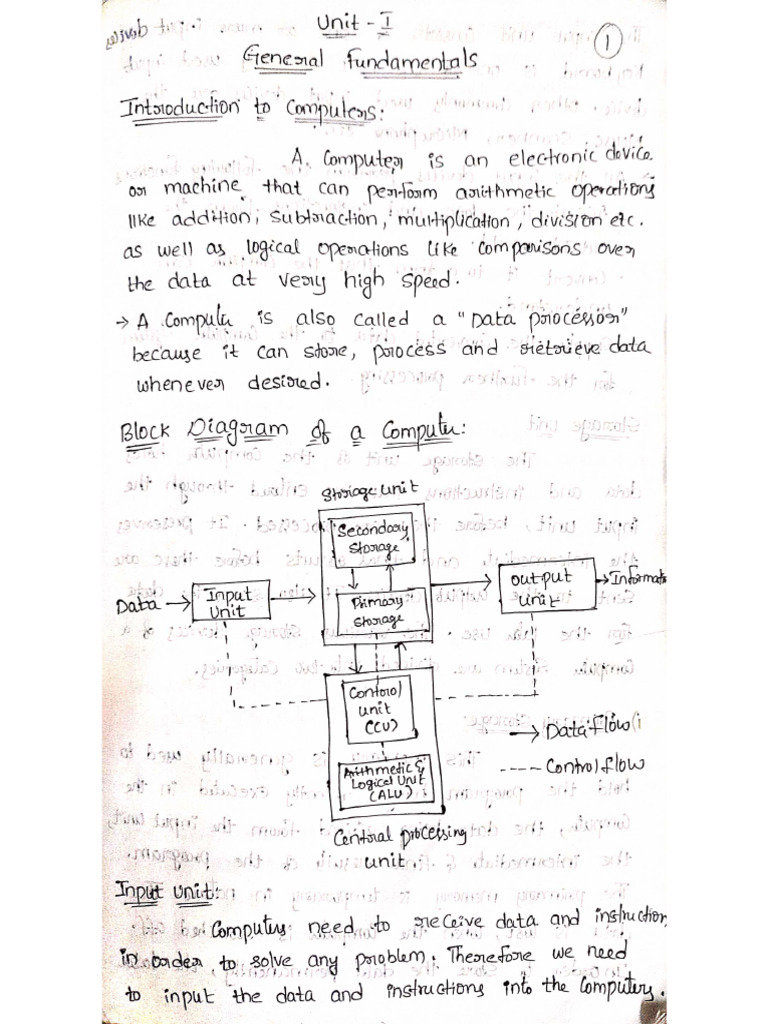 Unit - I
1
General Fundamentals
Introduction to Computers:
A computer is an electronic device
or machine that can perform arithmetic operations
like addition, subtraction, multiplication, division etc.
as well as logical operations like comparisons over
the data at very high speed.
→ A Computer is also called a "Data processor"
because it can store, process and retrieve data
whenever desired.
Block Diagram of a Computer:
Storage unit
Secondary
Storage
Data → Input
Unit
Primary
Storage
output
unit
→ Informat
Control
unit
(CU)
→ Data flow
Arithmetic &
Logical Unit
(ALU)
---- Control flow
Central processing
unit
Input Unit:
Computers need to receive data and instruction
in order to solve any problem. Therefore we need
to input the data and instructions into the computers.